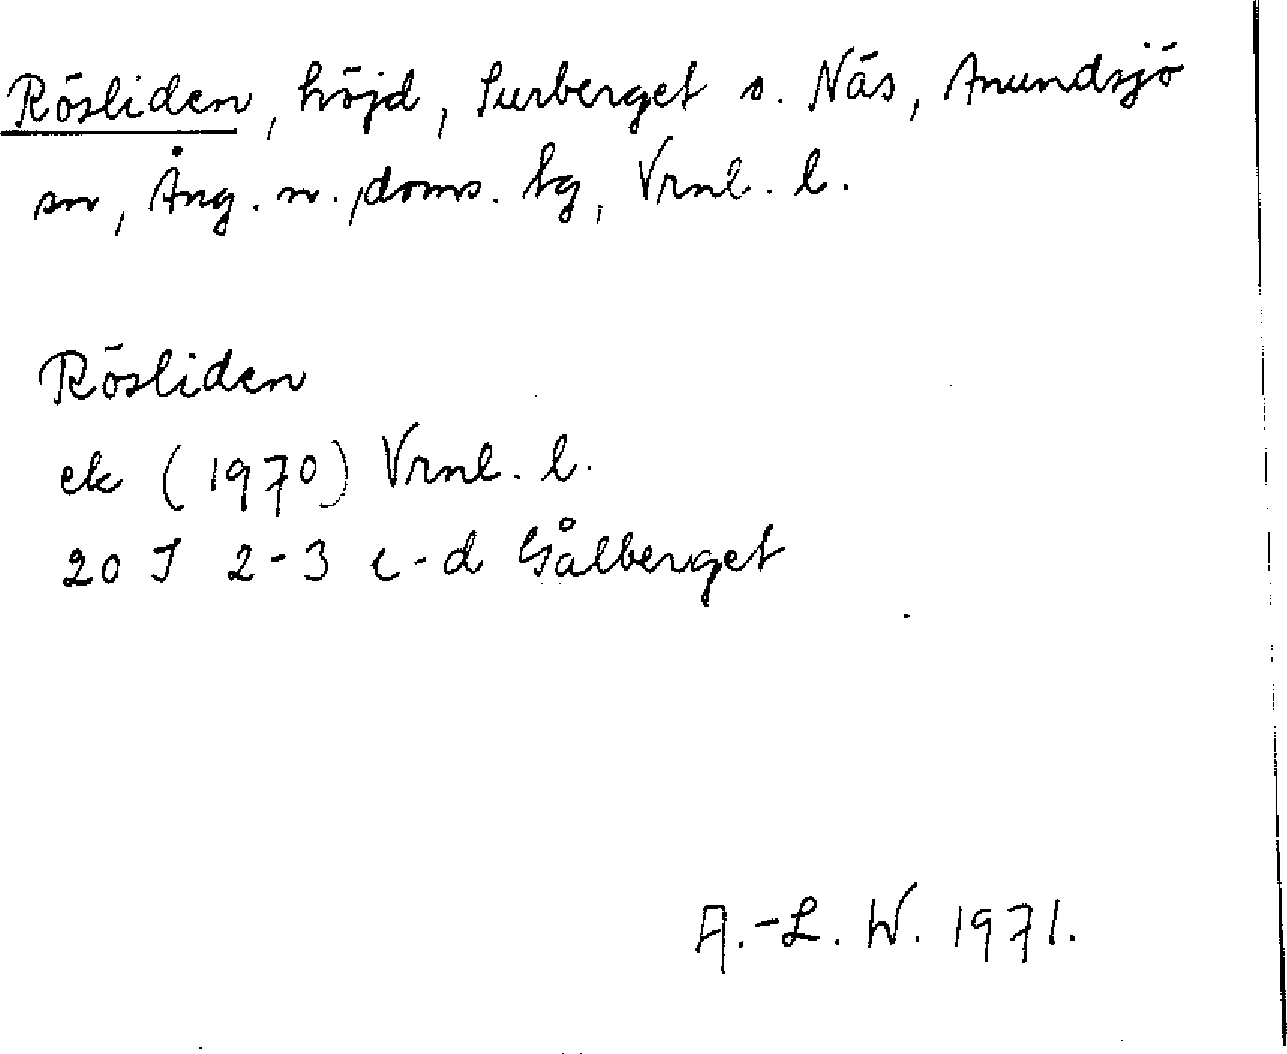 Rösliden, höjd, Surberget s. Näs, Anundsjö
sn, Ång. n. doms. tg, Vrnl. l.
Rösliden
ek (1970) Vrnl. l.
20 J 2-3 c-d Gålberget
A.-L. W. 1971.